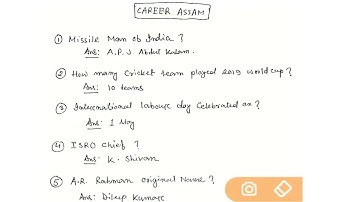 CAREER ASSAM
① Missile Man of India ?
Ans: A.P.J Abdul Kalam.
② How many Cricket team played 2019 world cup ?
Ans: 10 teams
③ International labour day Celebrated on ?
Ans: 1 May
④ ISRO Chief ?
Ans: K. Shivan
⑤ A.R. Rahman original Name ?
Ans: Dileep Kumar